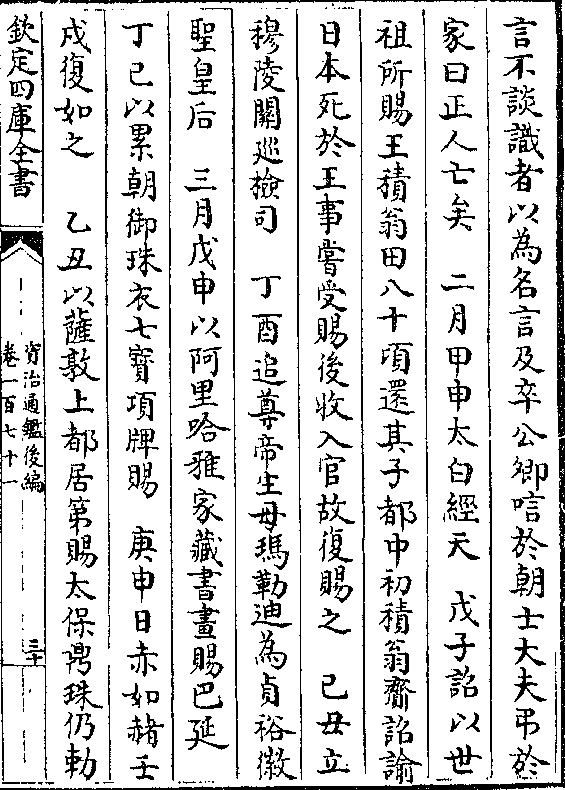 言不談識者以為名言及卒公卿唁於朝士大夫弔於
家曰正人亡矣　二月甲申太白經天　戊子詔以世
祖所賜王積翁田八十頃還其子都中初積翁齎詔諭
日本死於王事嘗受賜後收入官故復賜之　己丑立
穆陵關巡檢司　丁酉追尊帝生母瑪勒迪為貞裕徽
聖皇后　三月戊申以阿里哈雅家藏書畫賜巴延
丁巳以累朝御珠衣七寳項牌賜　庚申日赤如赭壬
戌復如之　乙丑以薩敦上都居第賜太保鼎珠仍勅
欽定四庫全書
資治通鑑後編
卷一百七十一
三十